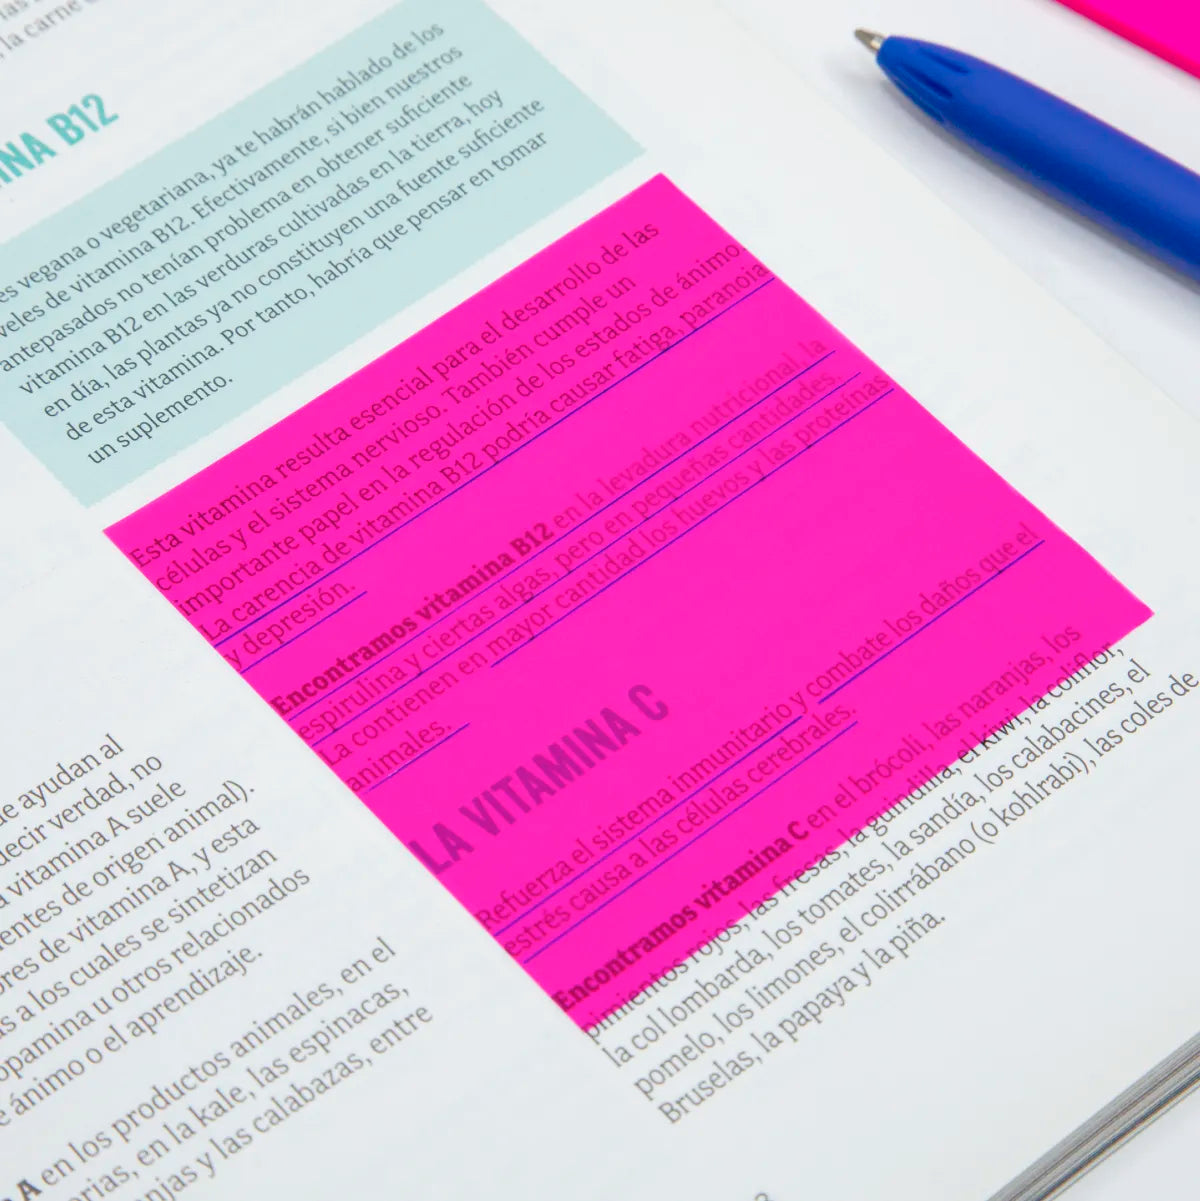 la carne
B12
es vegana o vegetariana, ya te habrán hablado de los
de vitamina B12. Efectivamente, si bien nuestros
antepasados no tenían problema en obtener suficiente
vitamina B12 en las verduras cultivadas en la tierra, hoy
en día, las plantas ya no constituyen una fuente suficiente
de esta vitamina. Por tanto, habría que pensar en tomar
un suplemento.
Esta vitamina resulta esencial para el desarrollo de las
células y el sistema nervioso. También cumple un
importante papel en la regulación de los estados de ánimo.
La carencia de vitamina B12 podría causar fatiga, paranoia
y depresión.
Encontramos vitamina B12 en la levadura nutricional, la
espirulina y ciertas algas, pero en pequeñas cantidades.
La contienen en mayor cantidad los huevos y las proteínas
animales.
LA VITAMINA C
Refuerza el sistema inmunitario y combate los daños que el
estrés causa a las células cerebrales.
Encontramos vitamina C en el brócoli, las naranjas, los
pimientos rojos, las fresas, la guindilla, el kiwi, la coliflor,
la col lombarda, los tomates, la sandía, los calabacines, el
pomelo, los limones, el colirrábano (o kohlrabi), las coles de
Bruselas, la papaya y la piña.
ayudan al
decir verdad, no
vitamina A suele
de origen animal).
de vitamina A, y esta
a los cuales se sintetizan
u otros relacionados
ánimo o el aprendizaje.
A en los productos animales, en el
en la kale, las espinacas,
y las calabazas, entre